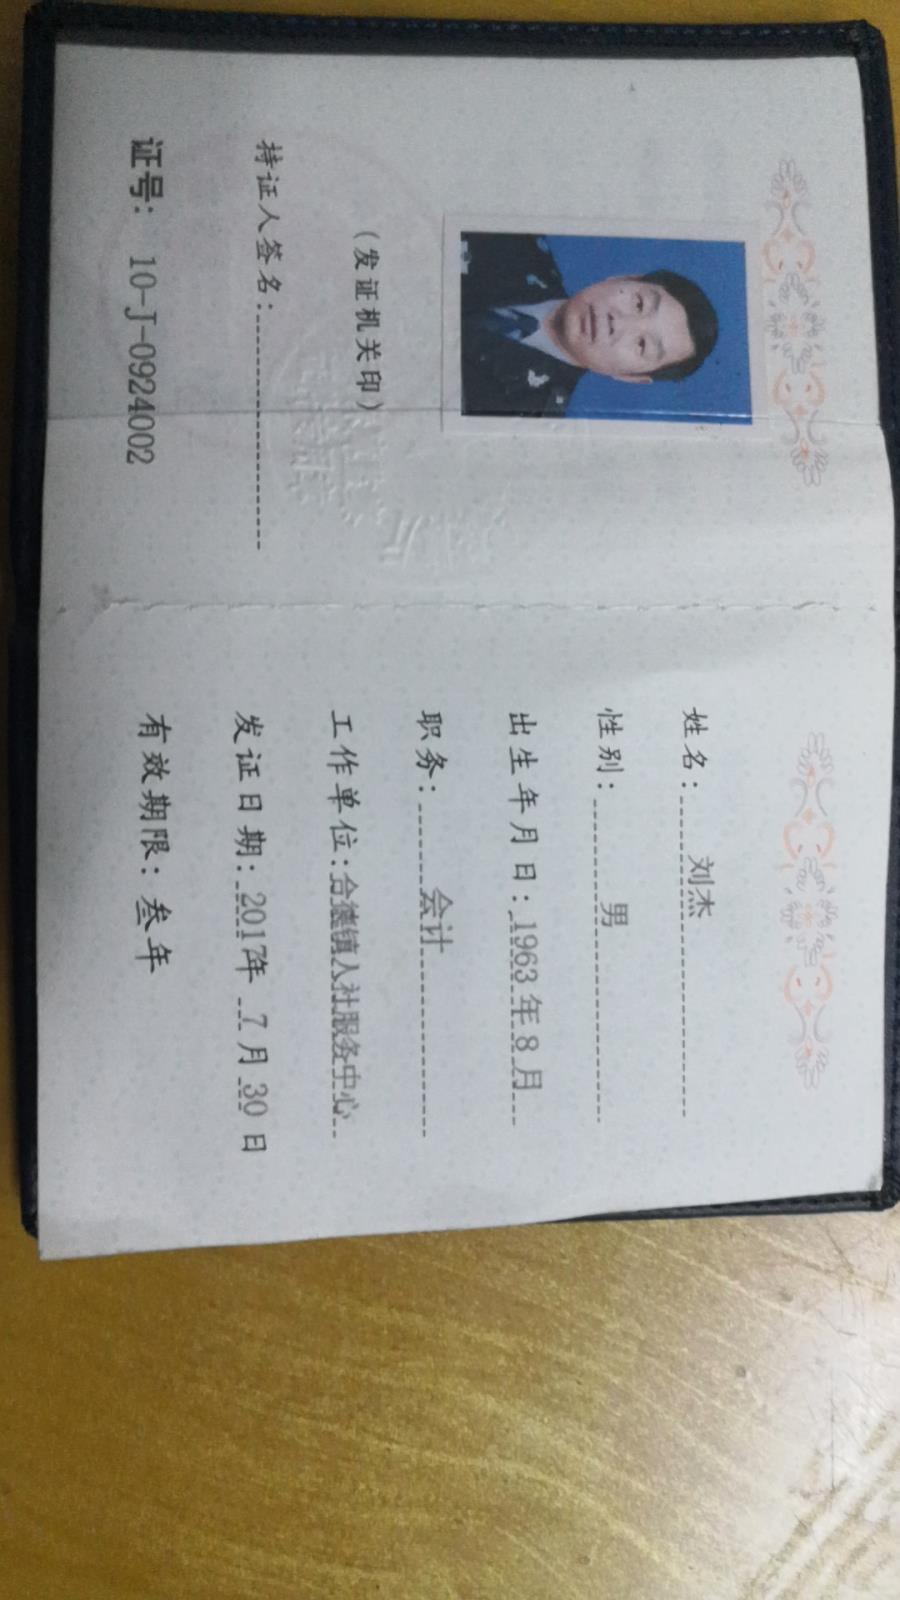 (发证机关印)
持证人签名:
证号: 10-J-0924002
姓名: 刘杰
性别: 男
出生年月日: 1963年8月
职务: 会计
工作单位: 合德镇人社服务中心
发证日期: 2017年 7月30日
有效期限: 叁年